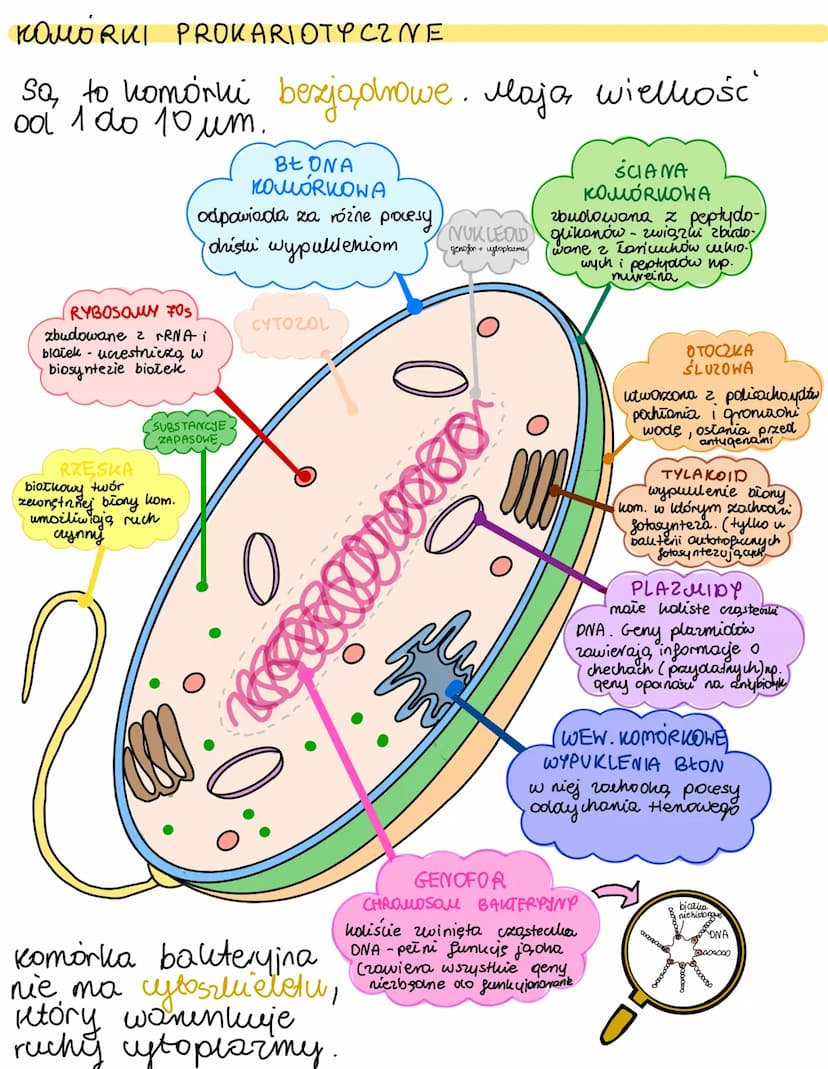 KOMÓRKI PROKARIOTYCZNE
Są to komórki bezjądrowe. Mają wielkość
od 1 do 10 µm.
BŁONA
KOMÓRKOWA
odpowiada za różne procesy
dzięki wypukleniom
NUKLEOID
genofor + cytoplazma
ŚCIANA
KOMÓRKOWA
zbudowana z peptydo-
glikanów - związki zbudo-
wane z łańcuchów cukro-
wych i peptydów np.
mureina
RYBOSOMY 70s
zbudowane z rRNA i
białek - uczestniczą w
biosyntezie białek
CYTOZOL
OTOCZKA
ŚLUZOWA
utworzona z polisacharydów
pochłania i gromadzi
wodę, osłania przed
antygenami
SUBSTANCJE
ZAPASOWE
RZĘSKA
białkowy twór
zewnętrznej błony kom.
umożliwiają ruch
czynny
TYLAKOID
wypuklenie błony
kom. w którym zachodzi
fotosynteza. (tylko u
bakterii autotroficznych
fotosyntezujących
PLAZMIDY
małe koliste cząsteczki
DNA. Geny plazmidów
zawierają informacje o
chechach (przydatnych) np.
geny oporności na antybiotyk
WEW. KOMÓRKOWE
WYPUKLENIA BŁON
w niej zachodzą procesy
oddychania tlenowego
GENOFOR
CHROMOSOM BAKTERYJNY
koliście zwinięta cząsteczka
DNA - pełni funkcję jądra
(zawiera wszystkie geny
niezbędne do funkcjonowania
białka
niehistonowe
DNA
Komórka bakteryjna
nie ma cytoszkieletu,
który warunkuje
ruchy cytoplazmy.